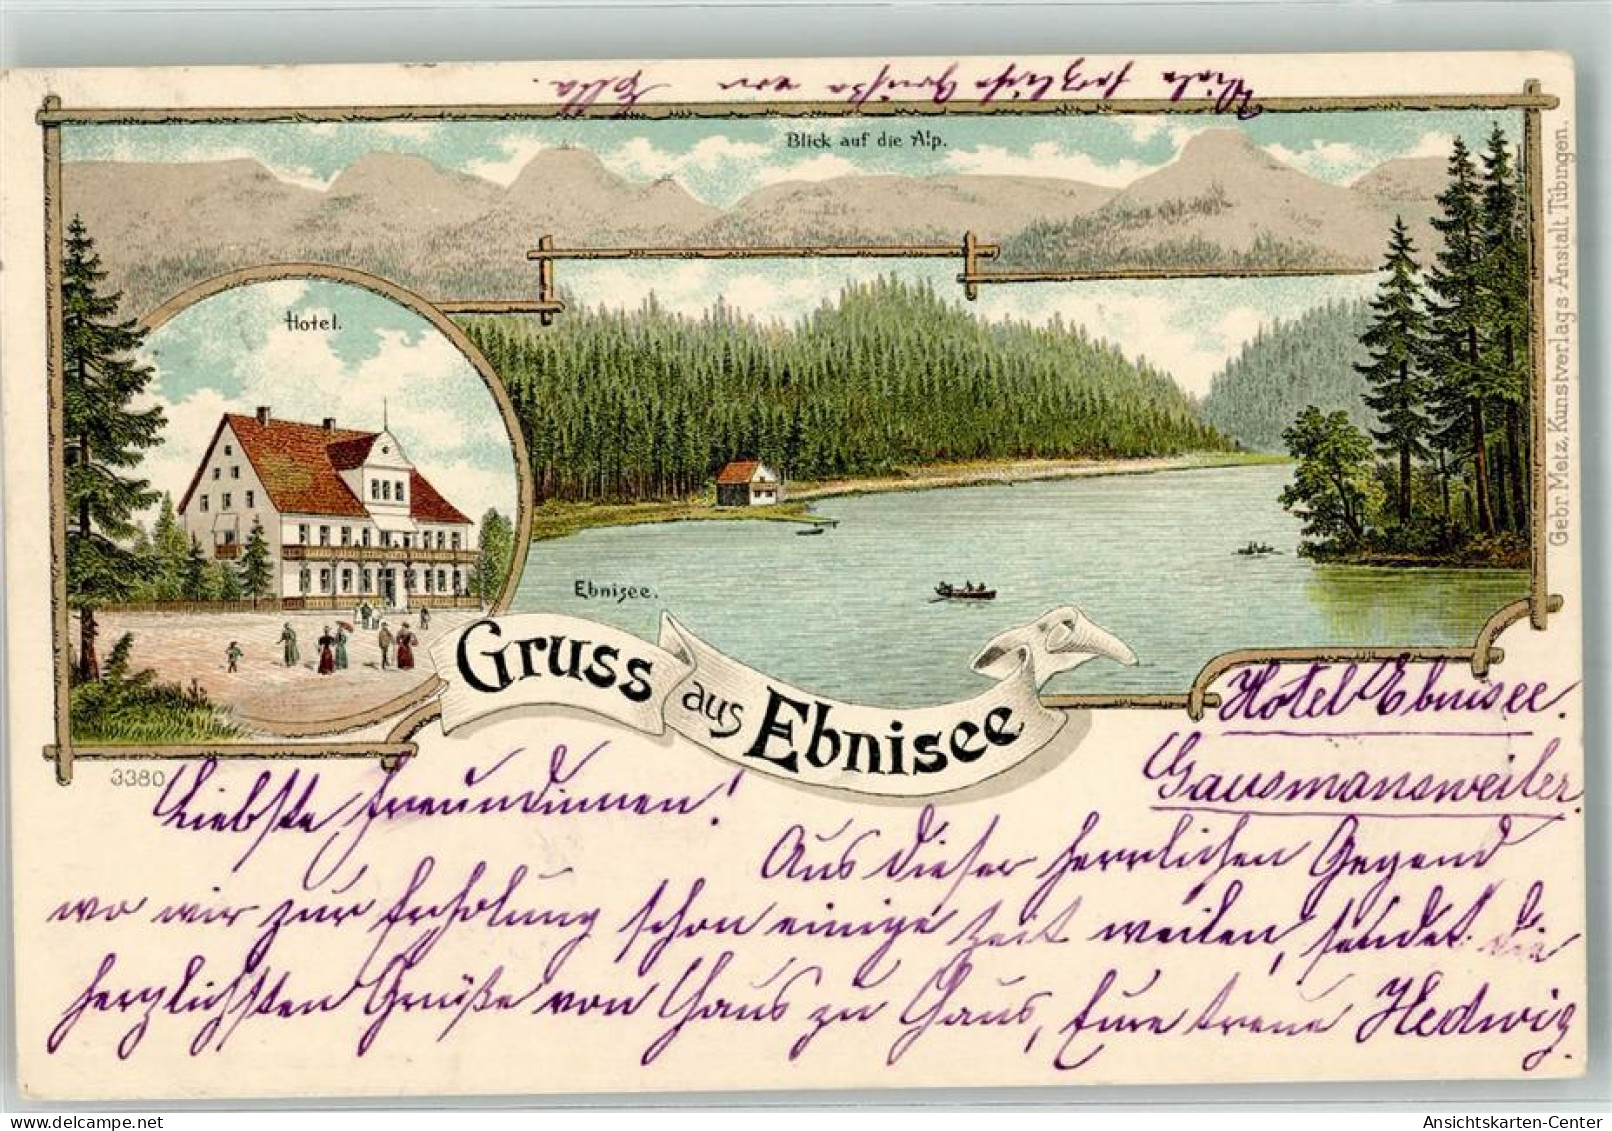 Viele herzliche Grüße von Ella.
Blick auf die Alp.
Hotel.
Ebnisee.
Gruss aus Ebnisee
Gebr. Metz, Kunstverlags Anstalt Tübingen.
3380
Hotel Ebnisee.
Gausmansweiler.
Liebste Freundinnen!
Aus dieser herrlichen Gegend
wo wir zur Erholung schon einige Zeit weilen, sendet die
herzlichsten Grüße von Haus zu Haus, Eure treue Hedwig
Ansichtskarten-Center
www.delcampe.net